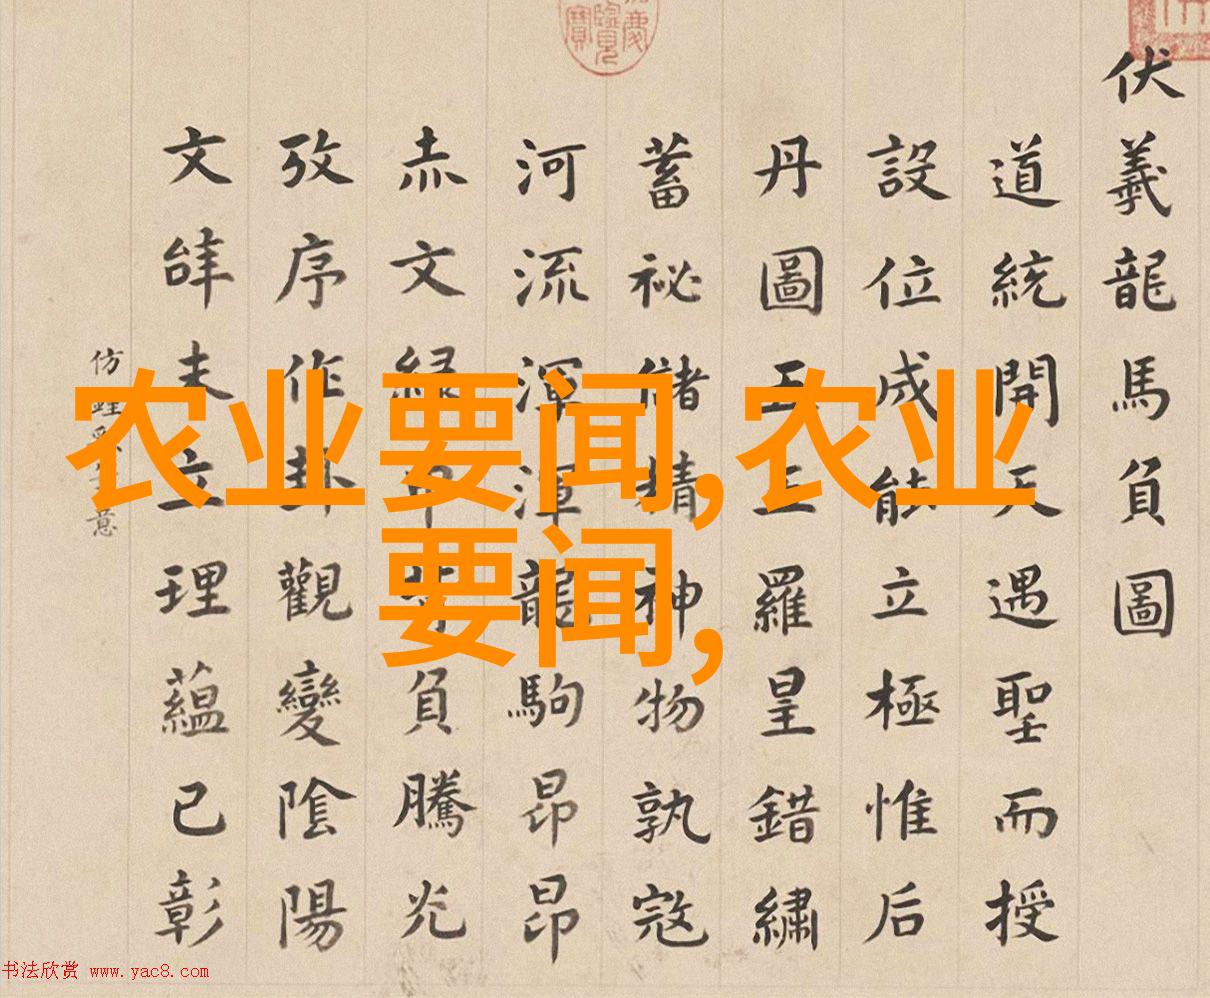 农业要闻,农业
要闻,
伏羲龍馬負圖
道統開天遇聖而授
設位成能立極惟后
丹圖羅皇錯繡
蓄祕儲精神物孰寇
河流渾渾龍駒昂昂
赤文緑甲負騰光
攷序作卦觀變陰陽
文辝未立理蘊已彰
仿意
书法欣赏 www.yac8.com